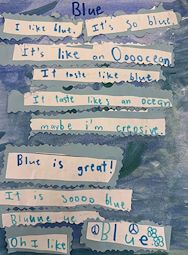 Blue
I like blue, It's so blue.
It's like an Oooocean
It taste like blue
It taste likes an ocean
maybe i'm crepsive
Blue is great!
It is soooo blue
Bluuue ue
Oh I like Blue